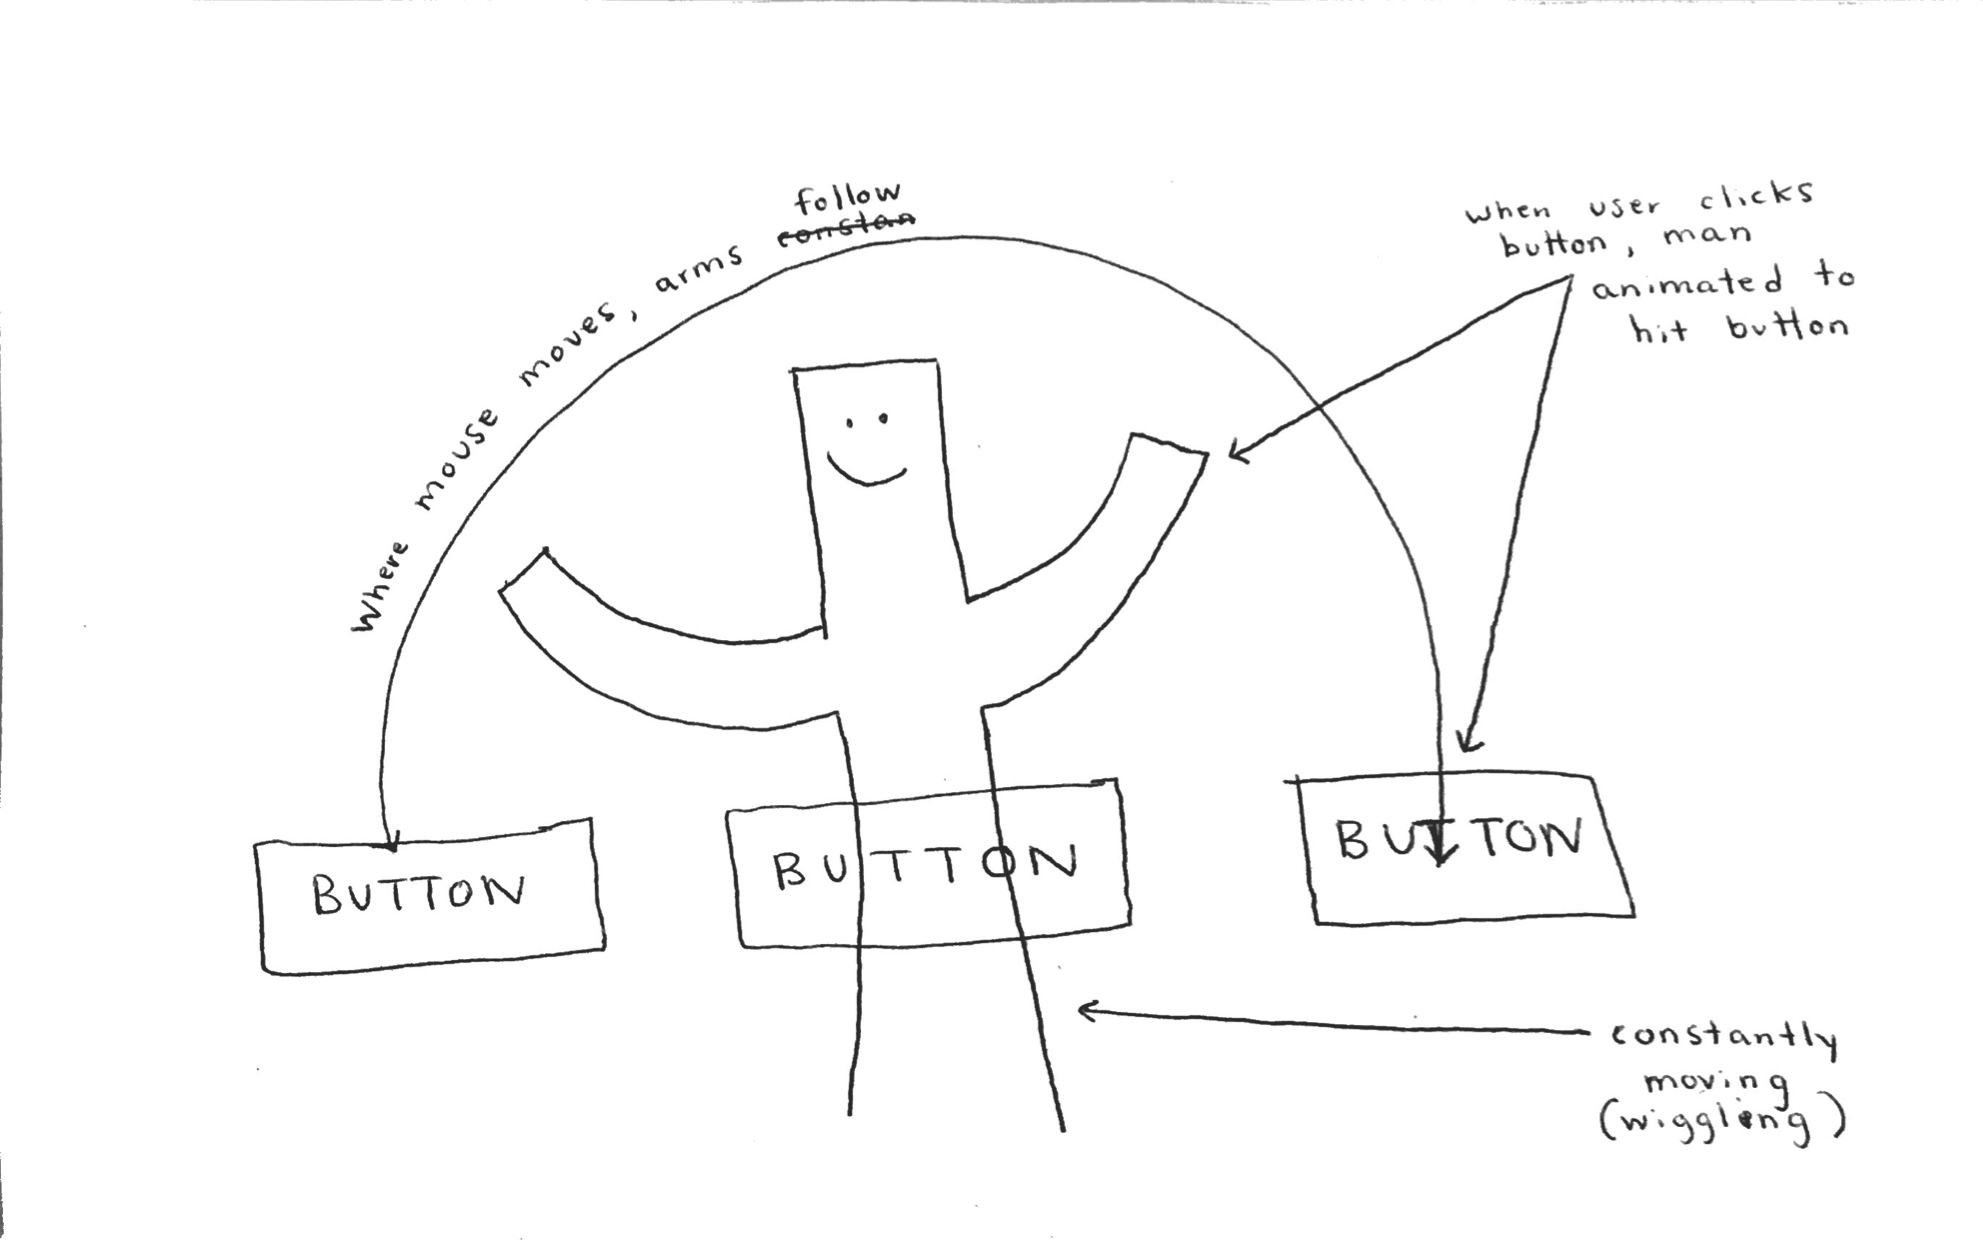 where mouse moves, arms follow
constan
when user clicks
button, man
animated to
hit button
BUTTON
BUTTON
BUTTON
constantly
moving
(wiggling)